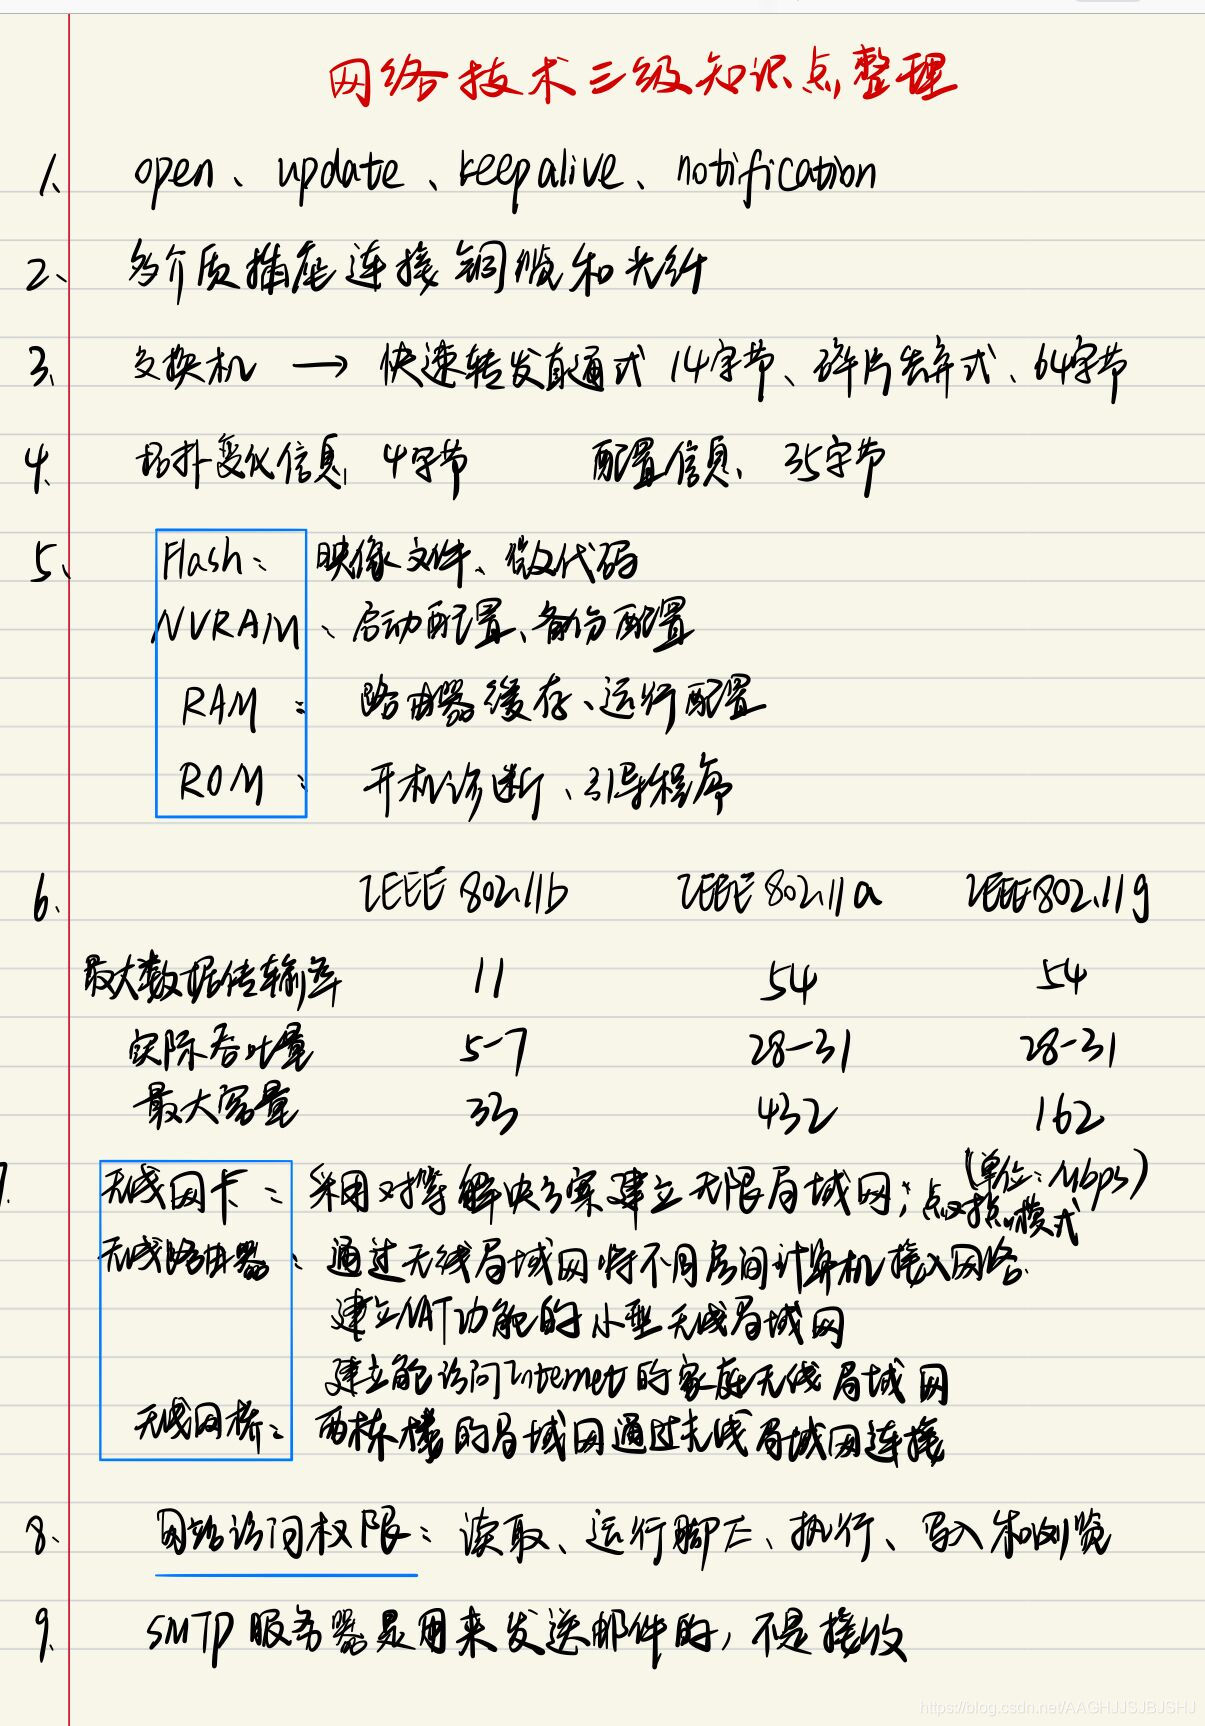 网络技术三级知识点整理
1、 open、update、keepalive、notification
2、 多介质插座连接铜缆和光纤
3、 交换机 → 快速转发直通式 14字节、碎片丢弃式、64字节
4、 拓扑变化信息、4字节 配置信息、35字节
5、 Flash: 映像文件、微代码
NVRAM、启动配置、备份配置
RAM: 路由器缓存、运行配置
ROM: 开机诊断、引导程序
6、 IEEE 802.11b IEEE 802.11a IEEE802.11g
最大数据传输率 11 54 54
实际吞吐量 5-7 28-31 28-31
最大容量 33 432 162
(单位: Mbps)
7、 无线网卡: 采用对等解决方案建立无限局域网; 点对点模式
无线路由器: 通过无线局域网将不同房间计算机接入网络.
建立NAT功能的小型无线局域网
建立能访问Internet的家庭无线局域网
无线网桥: 两栋楼的局域网通过无线局域网连接
8、 网站访问权限: 读取、运行脚本、执行、写入和浏览
9、 SMTP服务器是用来发送邮件的, 不是接收
https://blog.csdn.net/AAGHJJSJBJSHJ